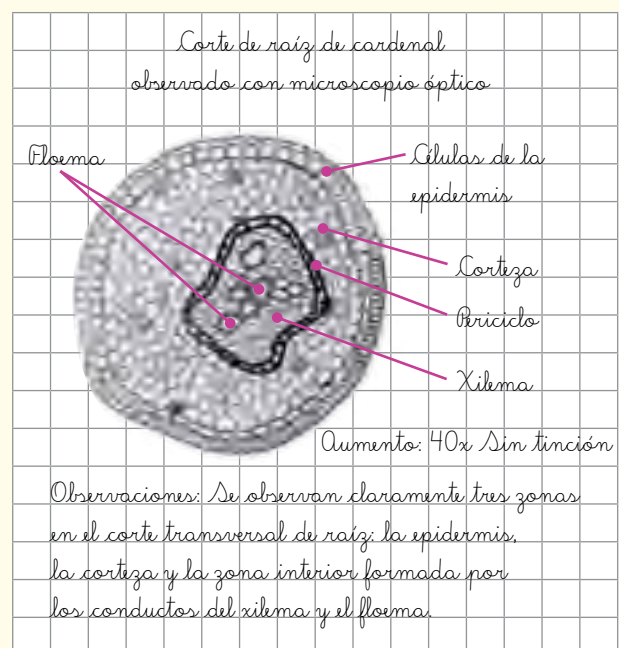 Corte de raíz de cardenal
observado con microscopio óptico
Floema
Células de la
epidermis
Corteza
Periciclo
Xilema
Aumento: 40x Sin tinción
Observaciones: Se observan claramente tres zonas
en el corte transversal de raíz: la epidermis,
la corteza y la zona interior formada por
los conductos del xilema y el floema.